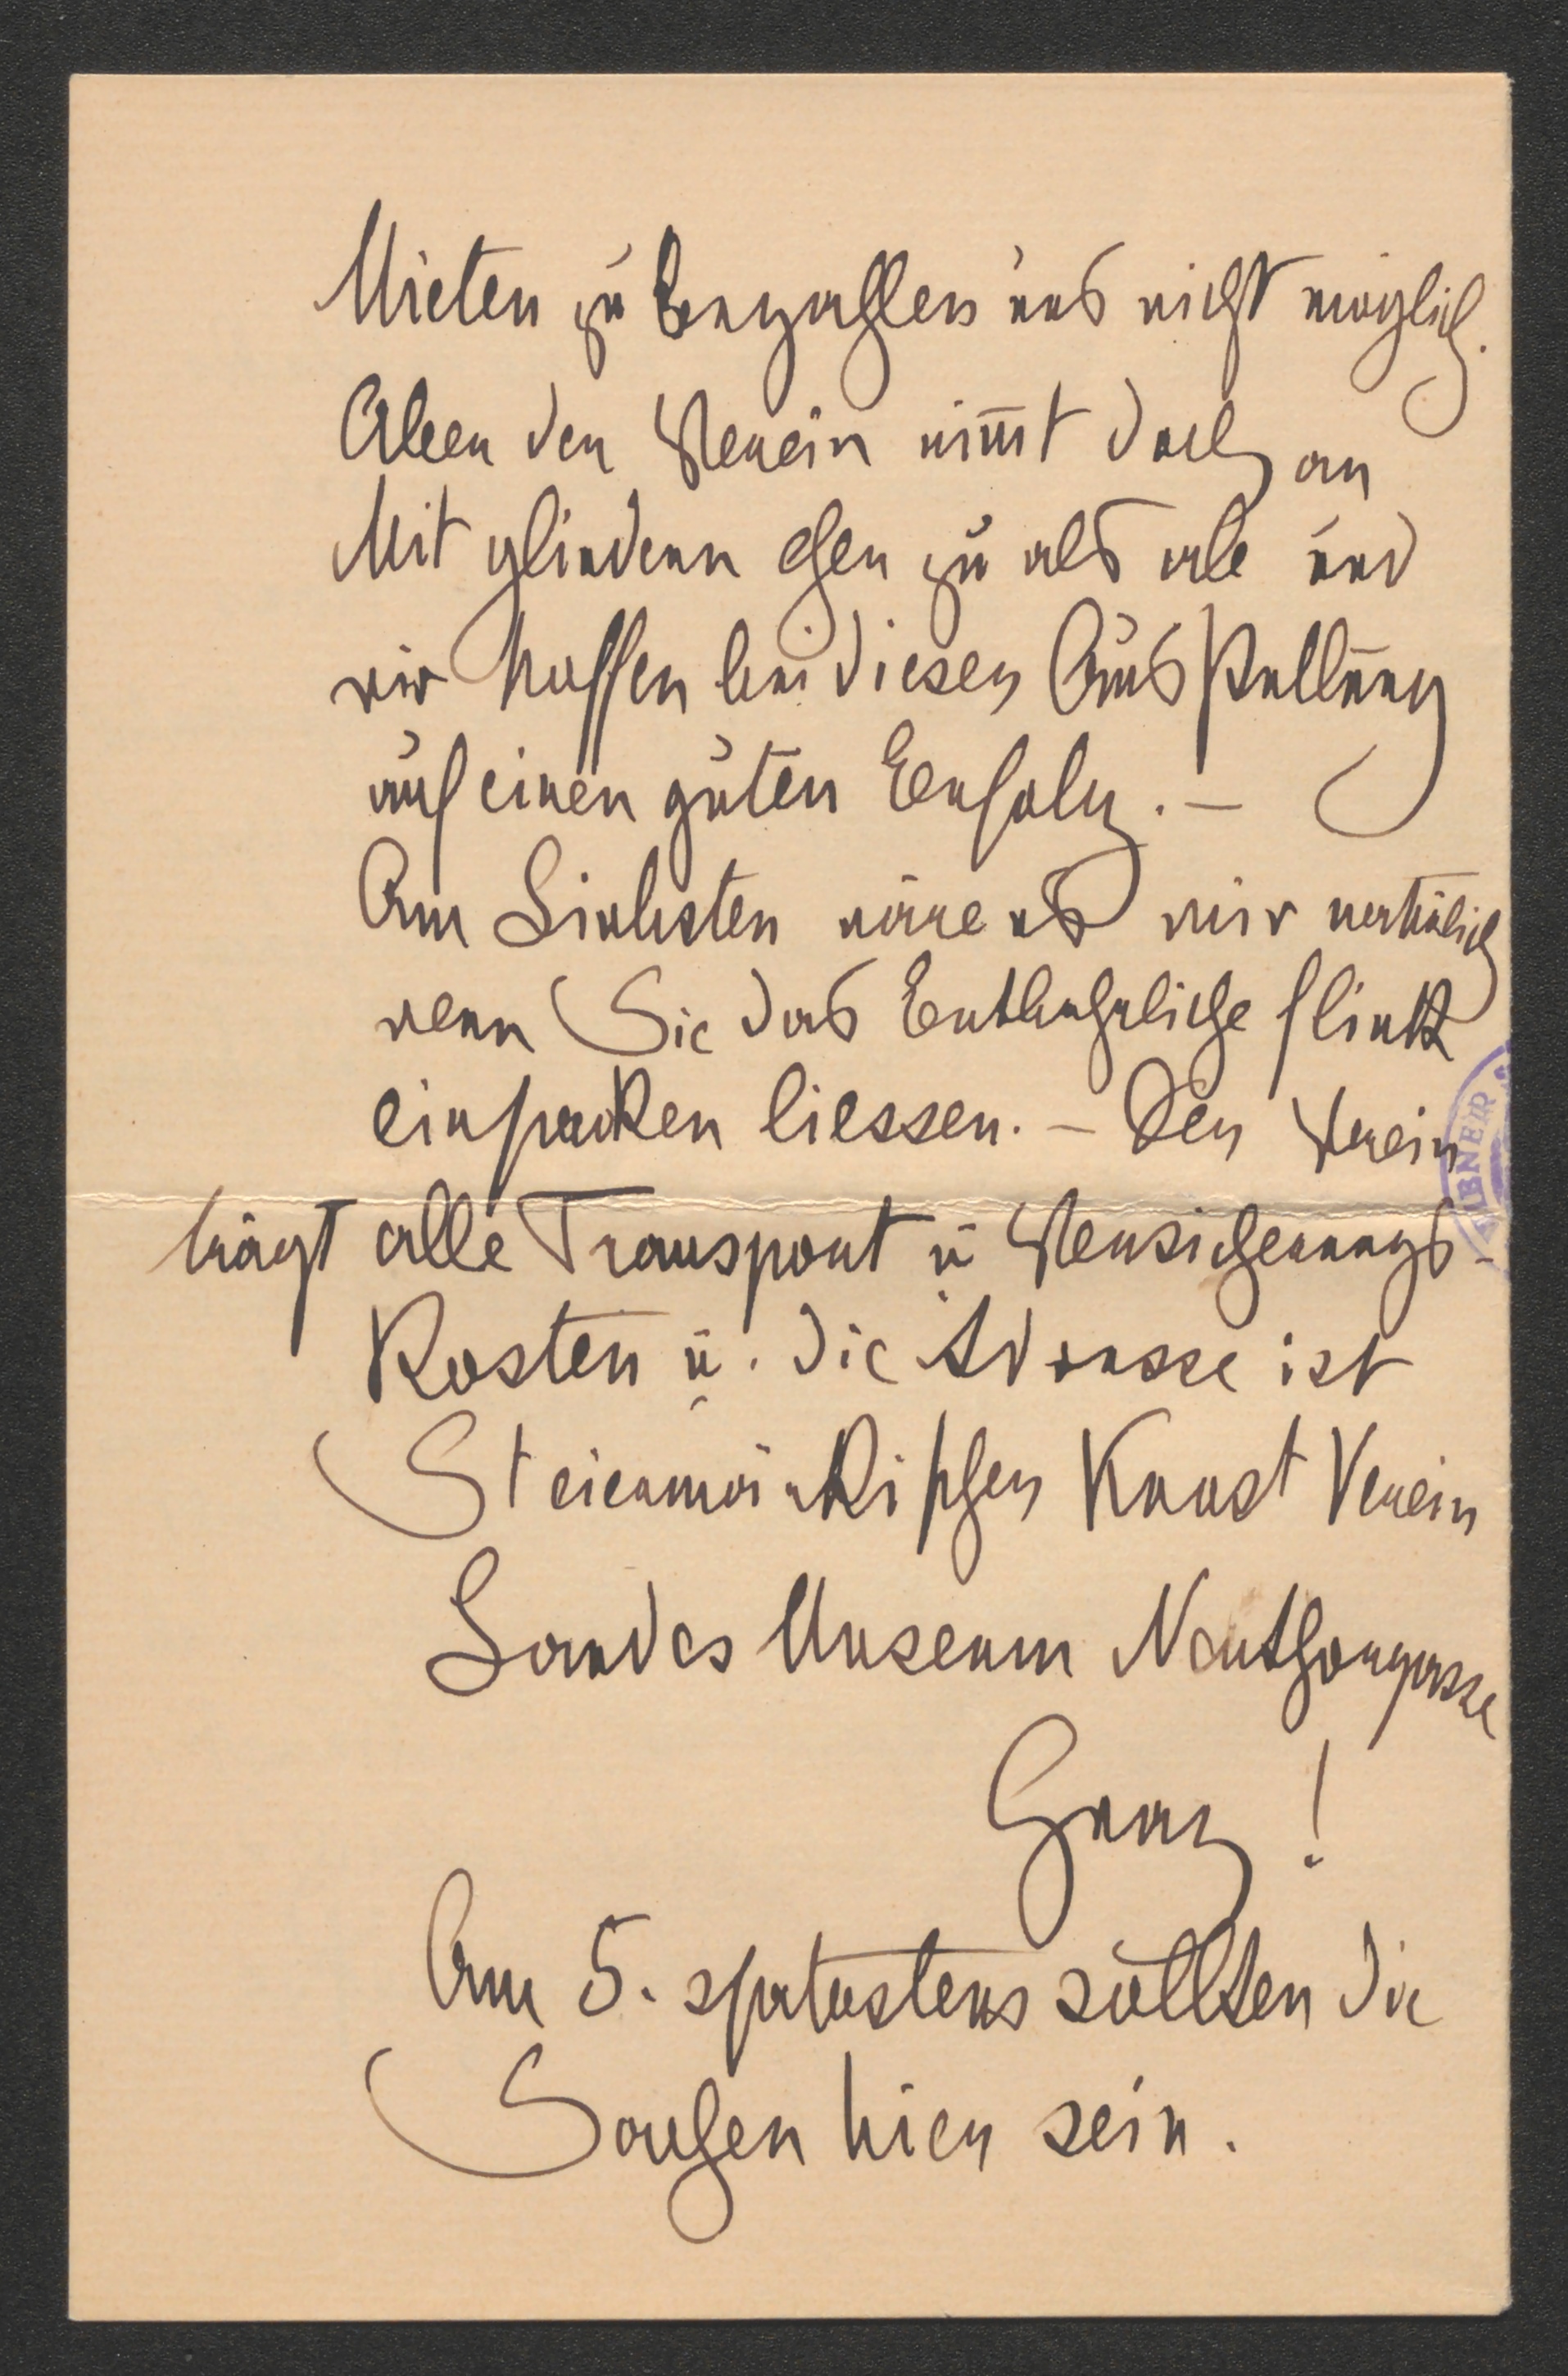 Mieten zu bezahlen uns nicht möglich.
Aber der Verein nimt doch an
Mitgliedern eher zu als ab und
wir hoffen bei dieser Ausstellung
auf einen guten Erfolg. –
Am Liebsten wäre es mir natürlich
wenn Sie das Entbehrliche flink
einpacken liessen. – Der Verein
trägt alle Transport u Versicherungs-
Kosten u. die Adresse ist
Steiermärkischer Kunst Verein
Landes Museum Neuthorgasse
Graz!
Am 5. spätestens sollten die
Sachen hier sein.